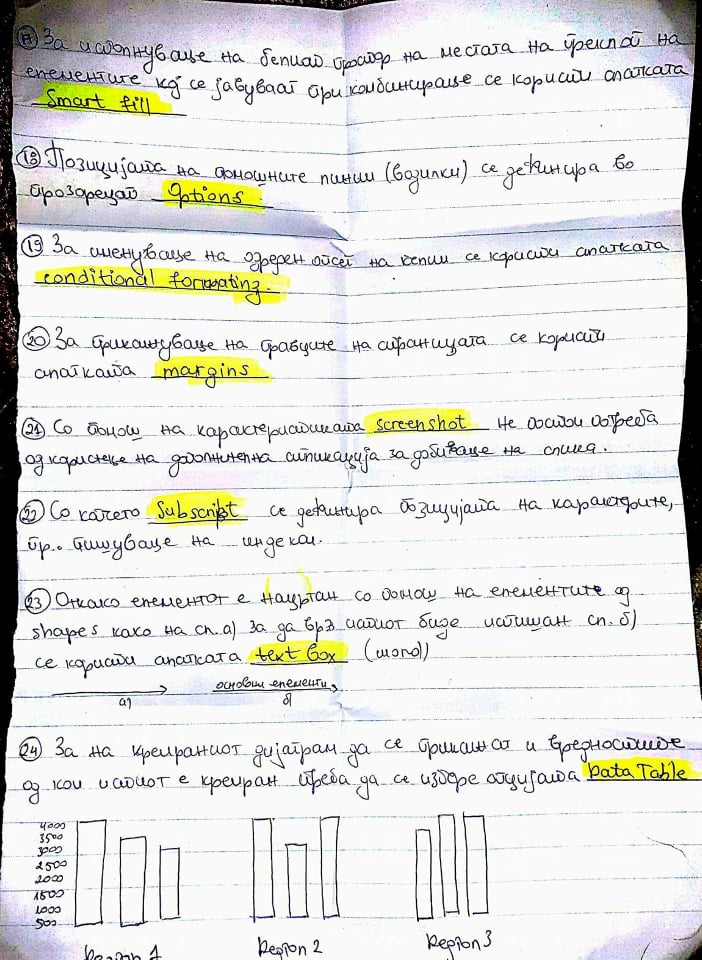 17 За исполнување на белиот простор на местата на преклоп на
елементите кој се јавуваат при комбинирање се користи алатката
Smart fill
18 Позицијата на помошните линии (водилки) се дефинира во
прозорецот Options.
19 За именување на одреден опсег на ќелии се користи алатката
conditional formating.
20 За прикажување на рабовите на страницата се користи
алатката margins
21 Со помош на карактеристиката screenshot не постои потреба
од користење на дополнителна апликација за добивање на слика.
22 Со копчето Subscript се дефинира позицијата на карактерите,
пр.. пишување на индекси.
23 Откако елементот е нацртан со помош на елементите од
shapes како на сл. а) за да врз истиот биде испишан сл. б)
се користи алатката text box (insert)
основни елементи
а) б)
24 За на креираниот дијаграм да се прикажат и вредностите
од кои истиот е креиран треба да се избере опцијата Data Table
4000
3500
3000
2500
2000
1500
1000
500
Region 1 Region 2 Region 3